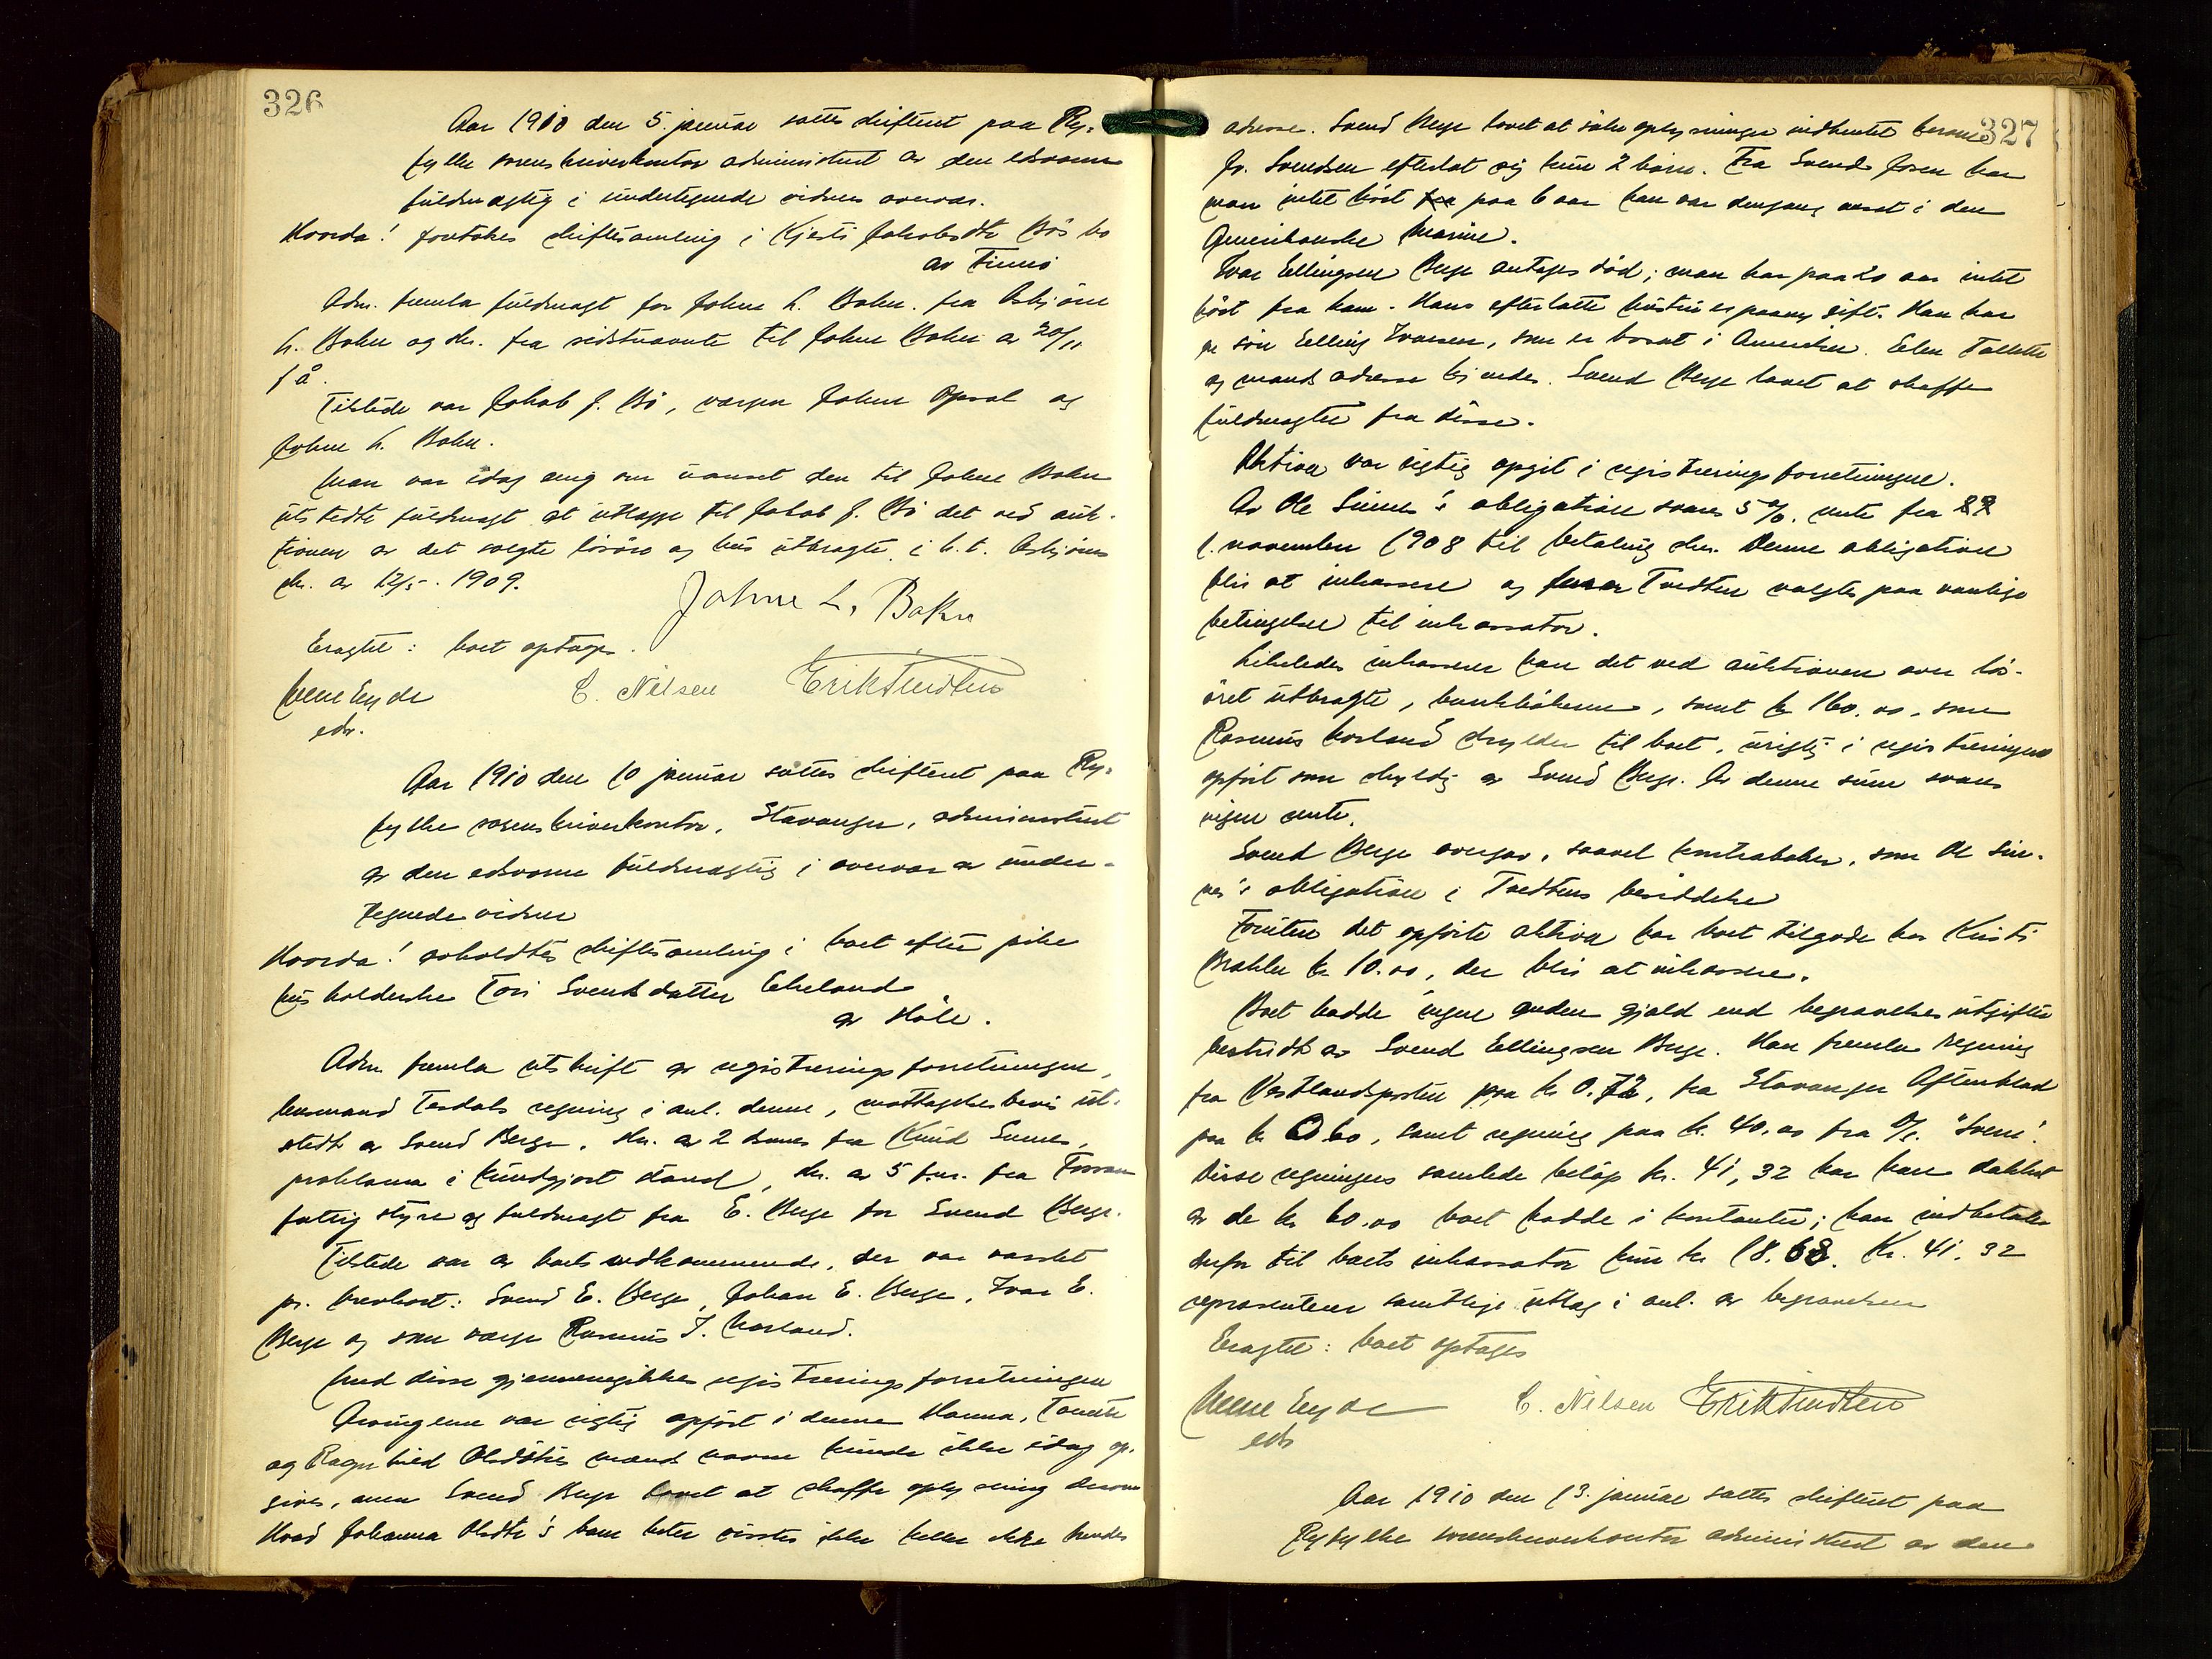 326
Aar 1910 den 5. januar sattes skifteret paa Ry-
fylke sorenskriverkontor administrert av den edsvorne
fuldmægtig i undertegnede vidners overvær.
Hvorda! foretokes skiftesamling i Kjersti Jakobsdtr Bøs bo
av Finnø
Adm. fremla fuldmagt for Johne L. Bokn fra Asbjørn
L. Bokn og skr. fra sidstnævnte til Johne Bokn av 20/11
f å.
Tilstede var Jakob J. Bø, vergen Johne Opsal og
Johne L. Bokn.
Man var idag enig om uanset den til Johne Bokn
utstedte fuldmagt at utlægge til Jakob J. Bø det ved auk-
tionen av det solgte løsøre og hus utbragte i h.t. Asbjørns
skr. av 12/5. 1909.
Johne L. Bokn
Eragtet: boet optages.
Arne Eyde C. Nilsen Erik Tvedten
edsv.
Aar 1910 den 10 januar sattes skifteret paa Ry-
fylke sorenskriverkontor, Stavanger, administrert
av den edsvorne fuldmægtig i overvær av under-
tegnede vidner
Hvorda! avholdtes skiftesamling i boet efter pike
husholderske Tori Svendsdatter Eikeland
av Høle.
Adm fremla utskrift av registreringsforretningen,
lensmand Tesdals regning i anl. denne, mottagelsesbevis ut-
stedt av Svend Berge, skr. av 2 dennes fra Knud
proklama i kundgjort stand, skr. av 5 f.m. fra Forsand
fattigstyre og fuldmagt fra E. Berge for Svend Berge.
Tilstede var av boets vedkommende, der var varslet
pr. brevkort: Svend E. Berge, Johan E. Berge, Ivar E.
Berge og som verge Rasmus T.
Med disse gjennemgikkes registreringsforretningen
Arvingerne var rigtig opført i denne Hanna, Tonette
og Ragnhild Olsdøtres mænds navne kunde ikke idag op-
gives, men Svend Berge lovet at skaffe oplysning derom
Hvad Johanna Olsdtr's barn heter vistes ikke heller ikke hendes
327
adresse. Svend Berge lovet at søke oplysninger indhentet herom
Jr. Svendsen efterlot sig kun 2 børn. Fra Svend har
man intet hørt paa 6 aar han var dengang ansat i den
Amerikanske Marine.
Ivar Ellingsen Berge antages død; man har paa 20 aar intet
hørt fra ham. Hans efterlatte hustru er paany gift. Han har
en søn Elling Ivarsen, som er bosat i Amerika.
og mands adresse kjendes. Svend Berge lovet at skaffe
fuldmagter fra disse.
Aktiva var rigtig opgit i registreringsforretningen.
Av Ole obligation svares 5 % rente fra
1. november 1908 til betaling sker. Denne obligation
blir at inkassere og Tvedten valgtes paa vanlige
betingelser til inkassator.
Likeledes inkasserer han det ved auktionen over løs-
øret utbragte, bankbøkerne, samt kr 160.00, som
Rasmus skylder til boet, urigtig i registreringen
opført som skyldig av Svend Berge. Av denne sum svares
ingen rente.
Svend Berge overgav, saavel kontrabøker, som Ole
obligation i Tvedtens besiddelse
Foruten det opførte aktiva har boet tilgode hos Kirsti
kr 10.00, der blir at inkassere.
Boet hadde ingen anden gjæld end begravelsesutgifter
bestridt av Svend Ellingsen Berge. Han fremla regning
fra Vestlandsposten paa kr 0.72, fra Stavanger Aftenblad
paa kr 0.60, samt regning paa kr. 40.00 fra
Disse regningers samlede beløp kr. 41,32 har han dækket
av de kr 60.00 boet hadde i kontanter; han indbetaler
derfor til boets inkassator kun kr 18.68. Kr. 41.32
repræsenterer samtlige utlæg i anl. av begravelsen
Eragtet: boet optages
Arne Eyde C. Nilsen Erik Tvedten
eds
Aar 1910 den 13. januar sattes skifteret paa
Ryfylke sorenskriverkontor administrert av den